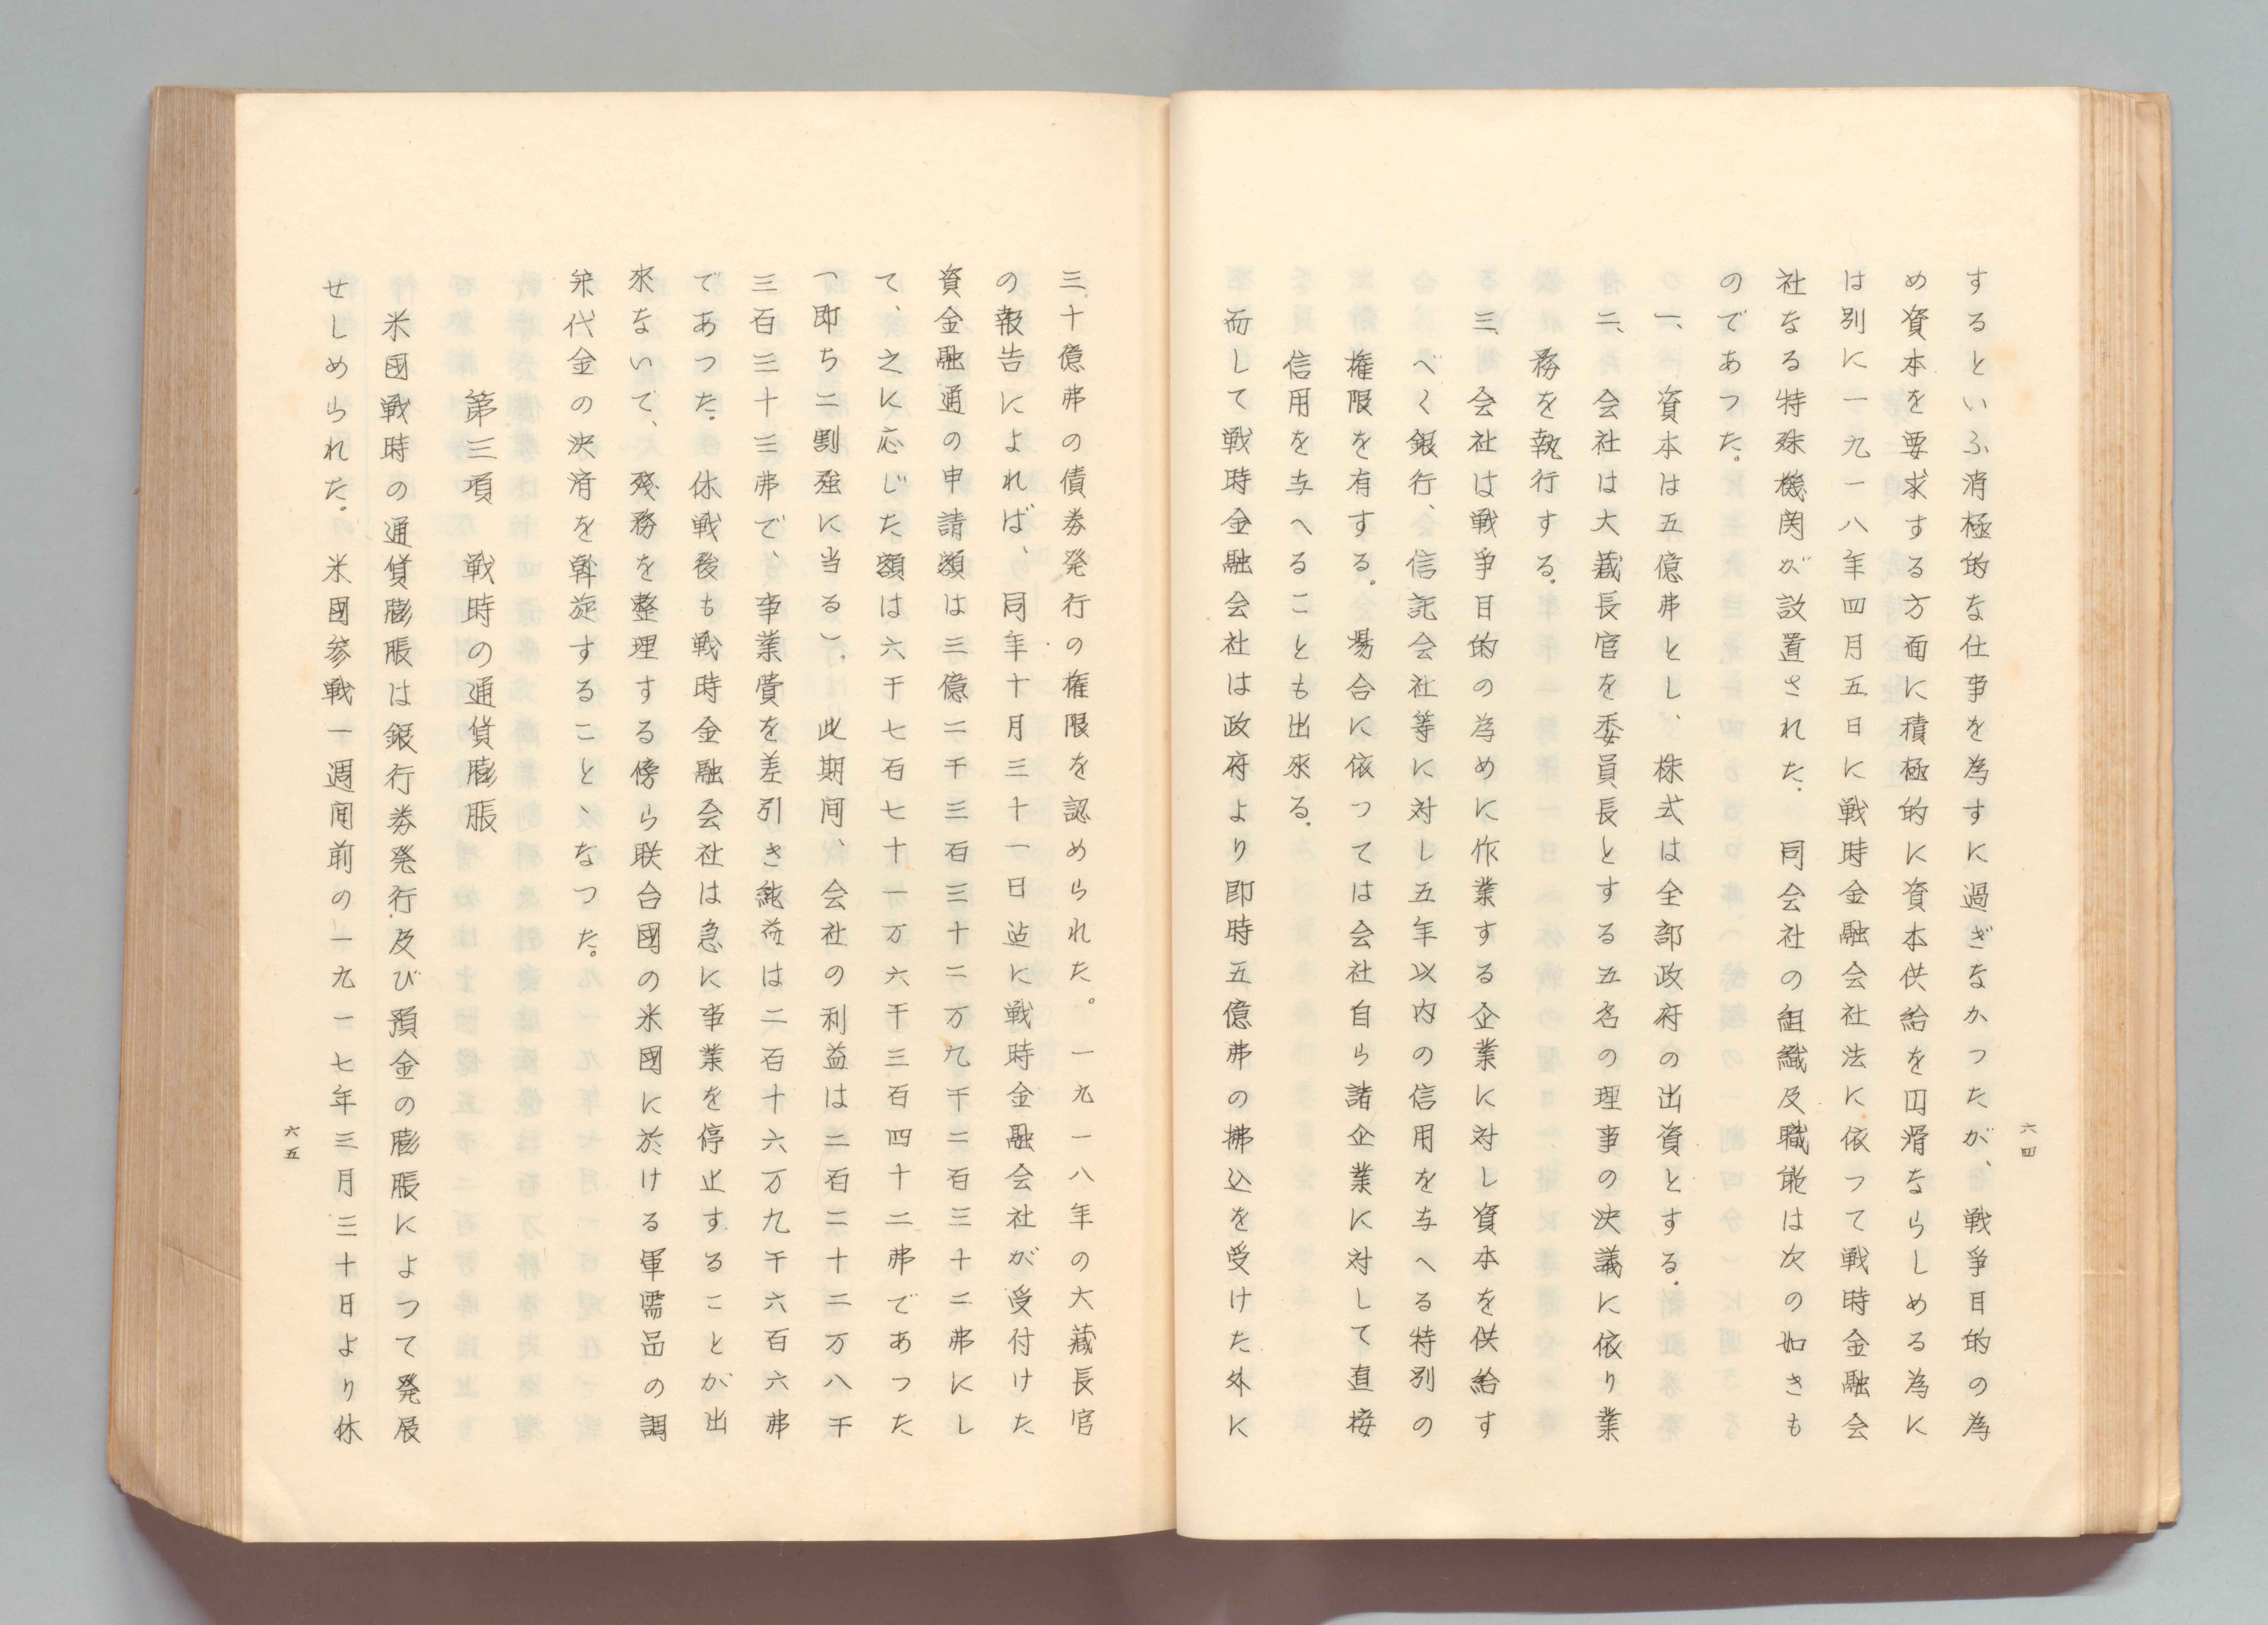 六四
するといふ消極的な仕事を為すに過ぎなかつたが、戦争目的の為
め資本を要求する方面に積極的に資本供給を円滑ならしめる為に
は別に一九一八年四月五日に戦時金融会社法に依つて戦時金融会
社なる特殊機関が設置された。同会社の組織及職能は次の如きも
のであつた。
一、資本は五億弗とし、株式は全部政府の出資とする。
二、会社は大蔵長官を委員長とする五名の理事の決議に依り業
務を執行する。
三、会社は戦争目的の為めに作業する企業に対し資本を供給す
べく銀行、信託会社等に対し五年以内の信用を与へる特別の
権限を有する。場合に依つては会社自ら諸企業に対して直接
信用を与へることも出来る。
而して戦時金融会社は政府より即時五億弗の拂込を受けた外に
三十億弗の債券発行の権限を認められた。一九一八年の大蔵長官
の報告によれば、同年十月三十一日迠に戦時金融会社が受付けた
資金融通の申請額は三億二千三百三十二万九千二百三十二弗にし
て、之に応じた額は六千七百七十一万六千三百四十二弗であつた
（即ち二割強に当る）。此期间、会社の利益は二百二十二万八千
三百三十三弗で、事業費を差引き純益は二百十六万九千六百六弗
であつた。休戦後も戦時金融会社は急に事業を停止することが出
来ないで、残務を整理する傍ら联合國の米國に於ける軍需品の調
弁代金の決済を斡旋することゝなつた。
第三項　戦時の通貨膨脹
米國戦時の通貨膨脹は銀行券発行及び預金の膨脹によつて発展
せしめられた。米國参戦一週间前の一九一七年三月三十日より休
六五